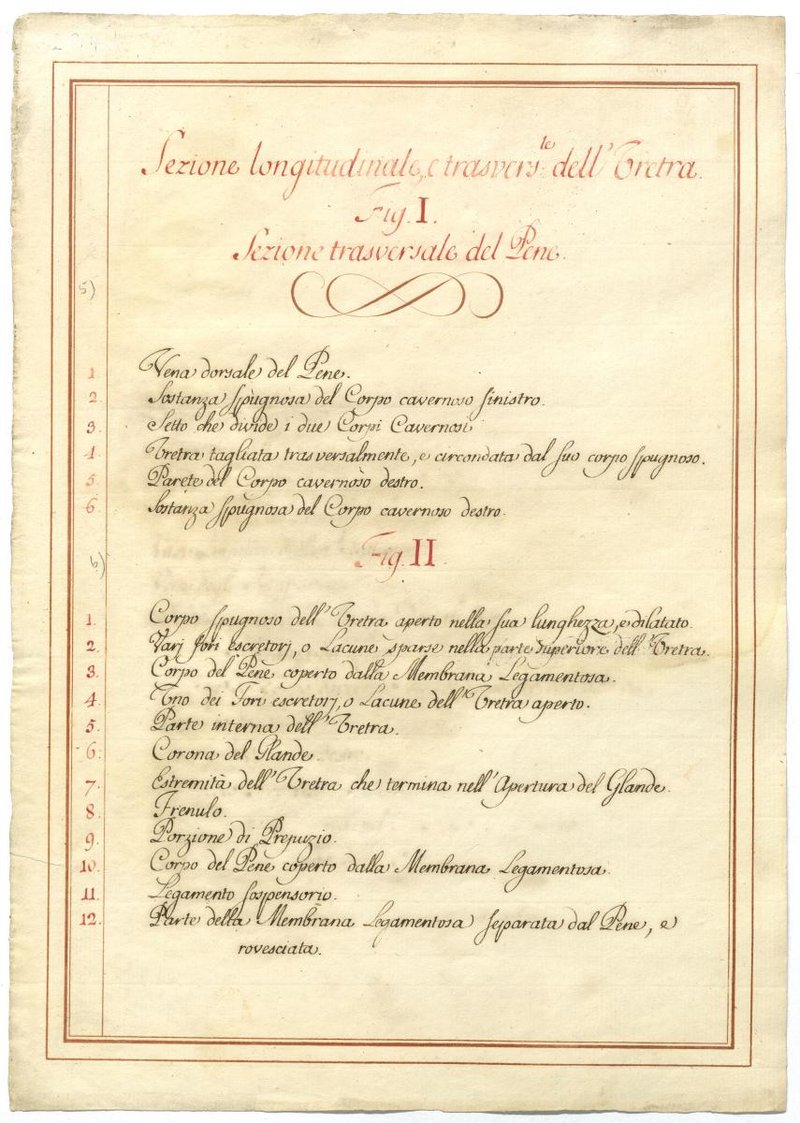 Sezione longitudinale, e trasvers.le dell' Uretra.
Fig. I.
Sezione trasversale del Pene.
5)
1 Vena dorsale del Pene.
2. Sostanza spugnosa del Corpo cavernoso sinistro.
3. Setto che divide i due Corpi Cavernosi
4 Uretra tagliata trasversalmente, e circondata dal suo corpo spugnoso.
5 Parete del Corpo cavernoso destro.
6. Sostanza spugnosa del Corpo cavernoso destro.
6)
Fig. II.
1. Corpo spugnoso dell' Uretra aperto nella sua lunghezza, e dilatato.
2. Varj fori escretorj, o Lacune sparse nella parte superiore dell' Uretra.
3. Corpo del Pene coperto dalla Membrana Legamentosa.
4. Uno dei Fori escretorj, o Lacune dell' Uretra aperto.
5. Parte interna dell' Uretra.
6. Corona del Glande.
7. Estremità dell' Uretra che termina nell' Apertura del Glande.
8. Frenulo.
9. Porzione di Prepuzio.
10. Corpo del Pene coperto dalla Membrana Legamentosa.
11. Legamento sospensorio.
12. Parte della Membrana Legamentosa separata dal Pene, e
rovesciata.